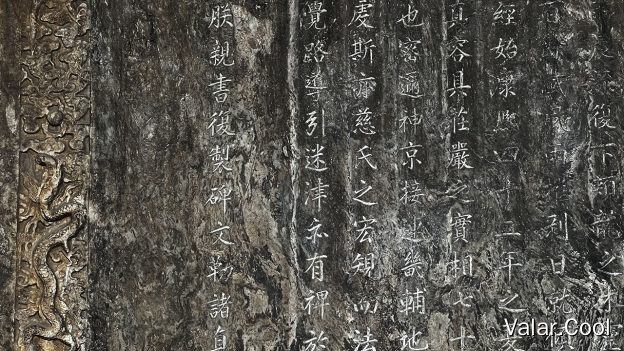 後下之
日就
經始康熙四十二年之夏
真容具莊嚴之寶相七十
也密邇神京接畿輔地
斯亦慈氏之宏規而法
覺路導引迷津亦有裨於
朕親書復製碑文勒諸貞
Valar.Cool